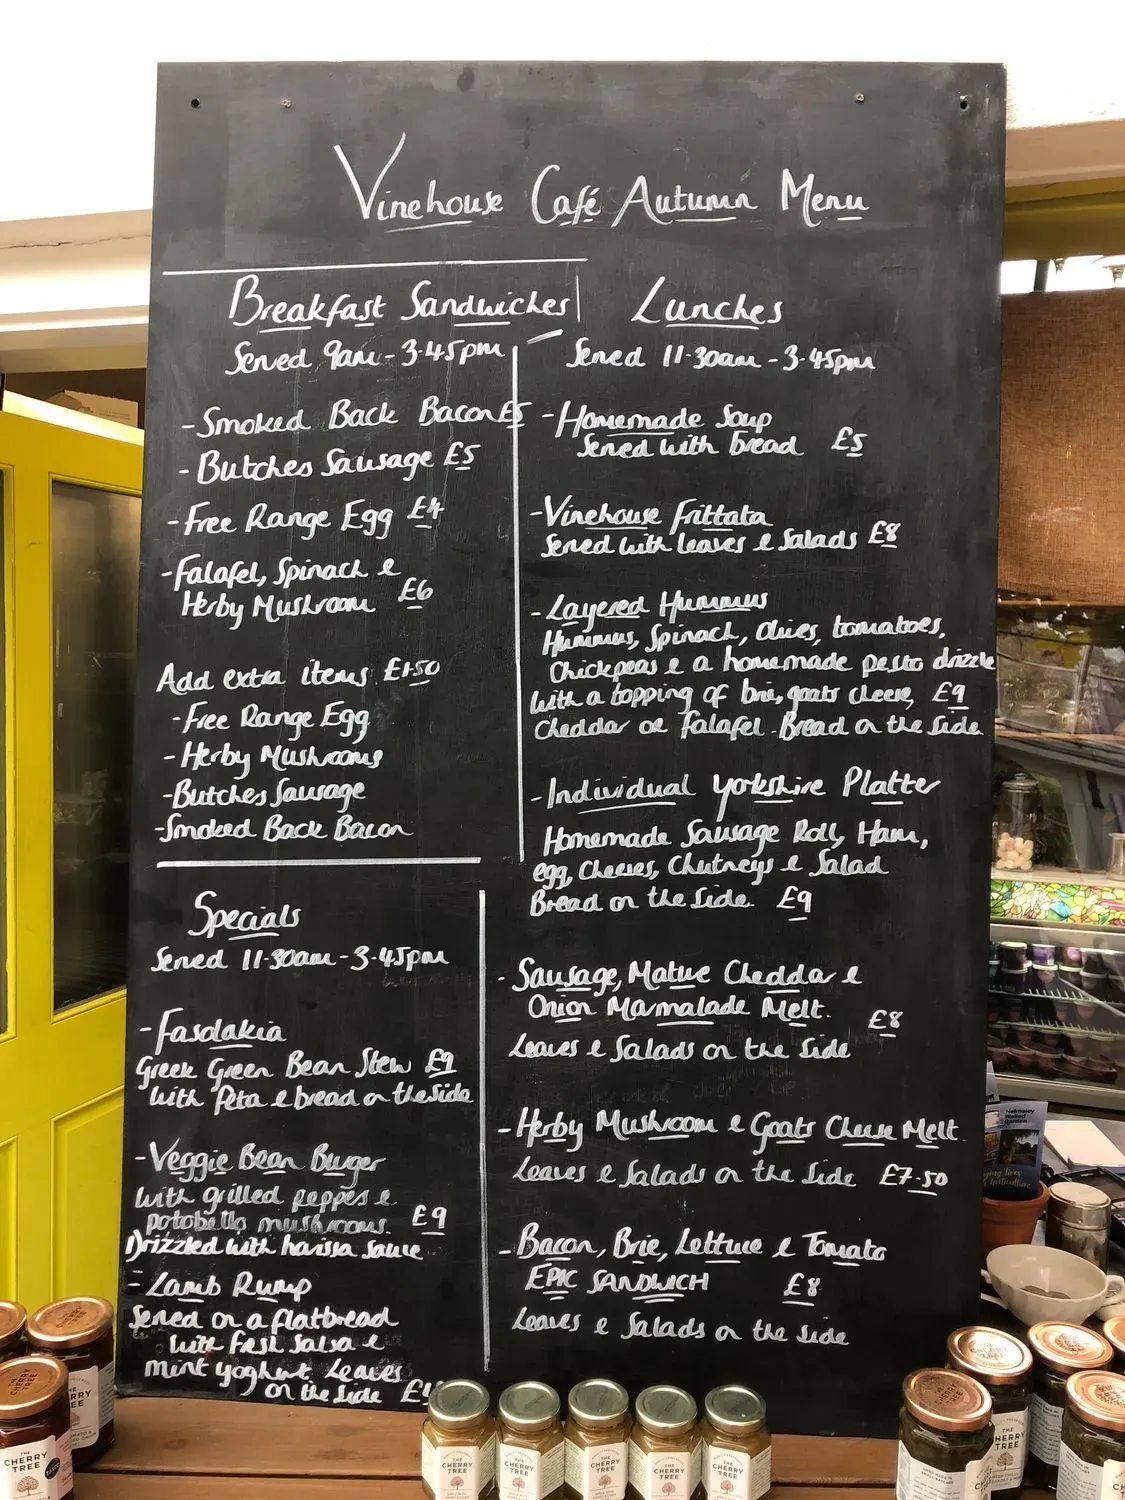 Vinehouse Café Autumn Menu
Breakfast Sandwiches
Served 9am - 3.45pm
- Smoked Back Bacon £5
- Butches Sausage £5
- Free Range Egg £4
- Falafel, Spinach &
Herby Mushroom £6
Add extra items £1.50
- Free Range Egg
- Herby Mushrooms
- Butches Sausage
- Smoked Back Bacon
Specials
Served 11.30am - 3.45pm
- Fasolakia
Greek Green Bean Stew £9
with Feta & bread on the side
- Veggie Bean Burger
with grilled peppers &
potobello mushrooms £9
Drizzled with harissa sauce
- Lamb Rump
Served on a flatbread
with fresh Salsa &
mint yoghurt Leaves
on the side
Lunches
Served 11.30am - 3.45pm
- Homemade Soup
Served with bread £5
- Vinehouse Frittata
Served with leaves & Salads £8
- Layered Hummus
Hummus, Spinach, olives, tomatoes,
Chickpeas & a homemade pesto drizzle
with a topping of brie, goats cheese, £9
Cheddar or Falafel. Bread on the side
- Individual Yorkshire Platter
Homemade Sausage Roll, Ham,
egg, Cheeses, Chutneys & Salad
Bread on the side. £9
- Sausage, Mature Cheddar &
Onion Marmalade Melt.
£8
Leaves & Salads on the side
- Herby Mushroom & Goats Cheese Melt.
Leaves & Salads on the side £7.50
- Bacon, Brie, Lettuce & Tomato
EPIC SANDWICH £8
Leaves & Salads on the side
Helmsley
Walled
Garden
THE
CHERRY
TREE
THE
CHERRY
TREE
THE
CHERRY
TREE
THE
CHERRY
TREE
THE
CHERRY
TREE
THE
CHERRY
TREE